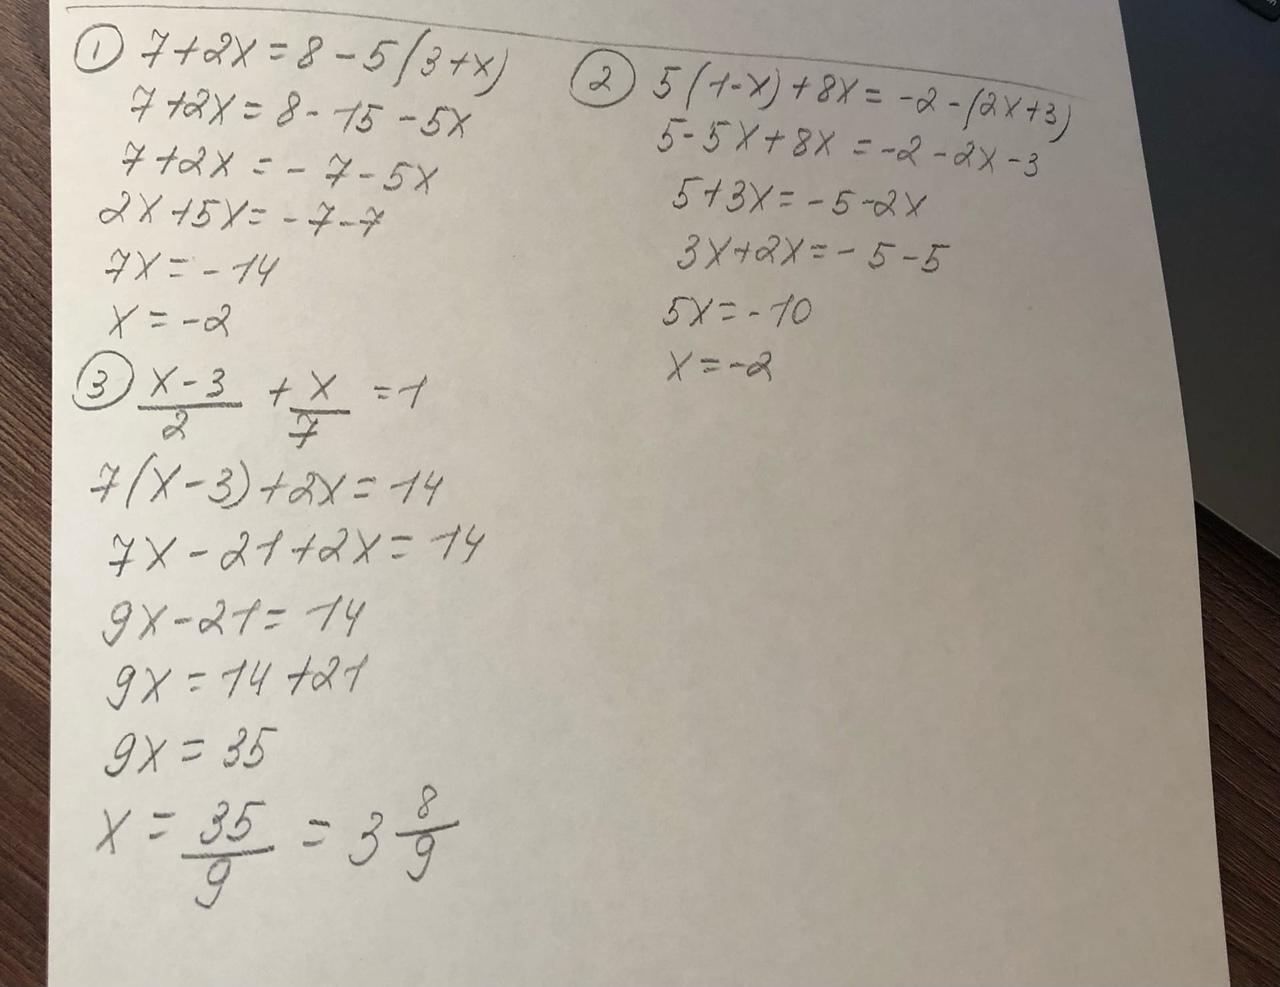 ① 7+2x=8-5(3+x)
7+2x=8-15-5x
7+2x=-7-5x
2x+5x=-7-7
7x=-14
x=-2
② 5(1-x)+8x=-2-(2x+3)
5-5x+8x=-2-2x-3
5+3x=-5-2x
3x+2x=-5-5
5x=-10
x=-2
③ (x-3)/2 + x/7 =1
7(x-3)+2x=14
7x-21+2x=14
9x-21=14
9x=14+21
9x=35
x=35/9=3 8/9